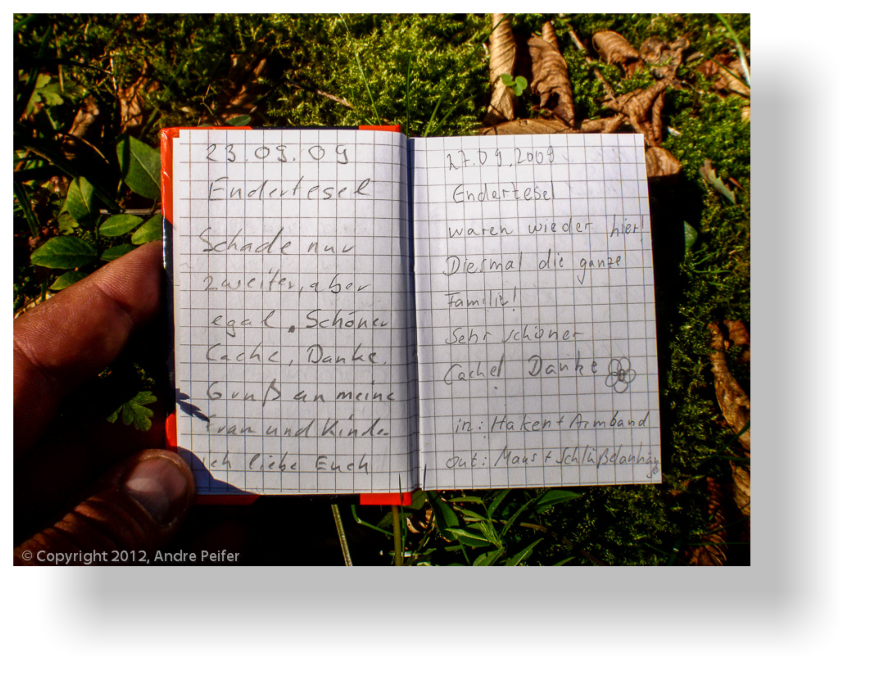 23.09.09
Endertesel
Schade nur
zweiter, aber
egal. Schöner
Cache, Danke.
Gruß an meine
Frau und Kinder
ich liebe Euch
27.09.2009
Endertesel
waren wieder hier!
Diesmal die ganze
Familie!
Sehr schöner
Cache! Danke
in: Haken + Armband
out: Maus + Schlüßelanhänger
© Copyright 2012, Andre Peifer